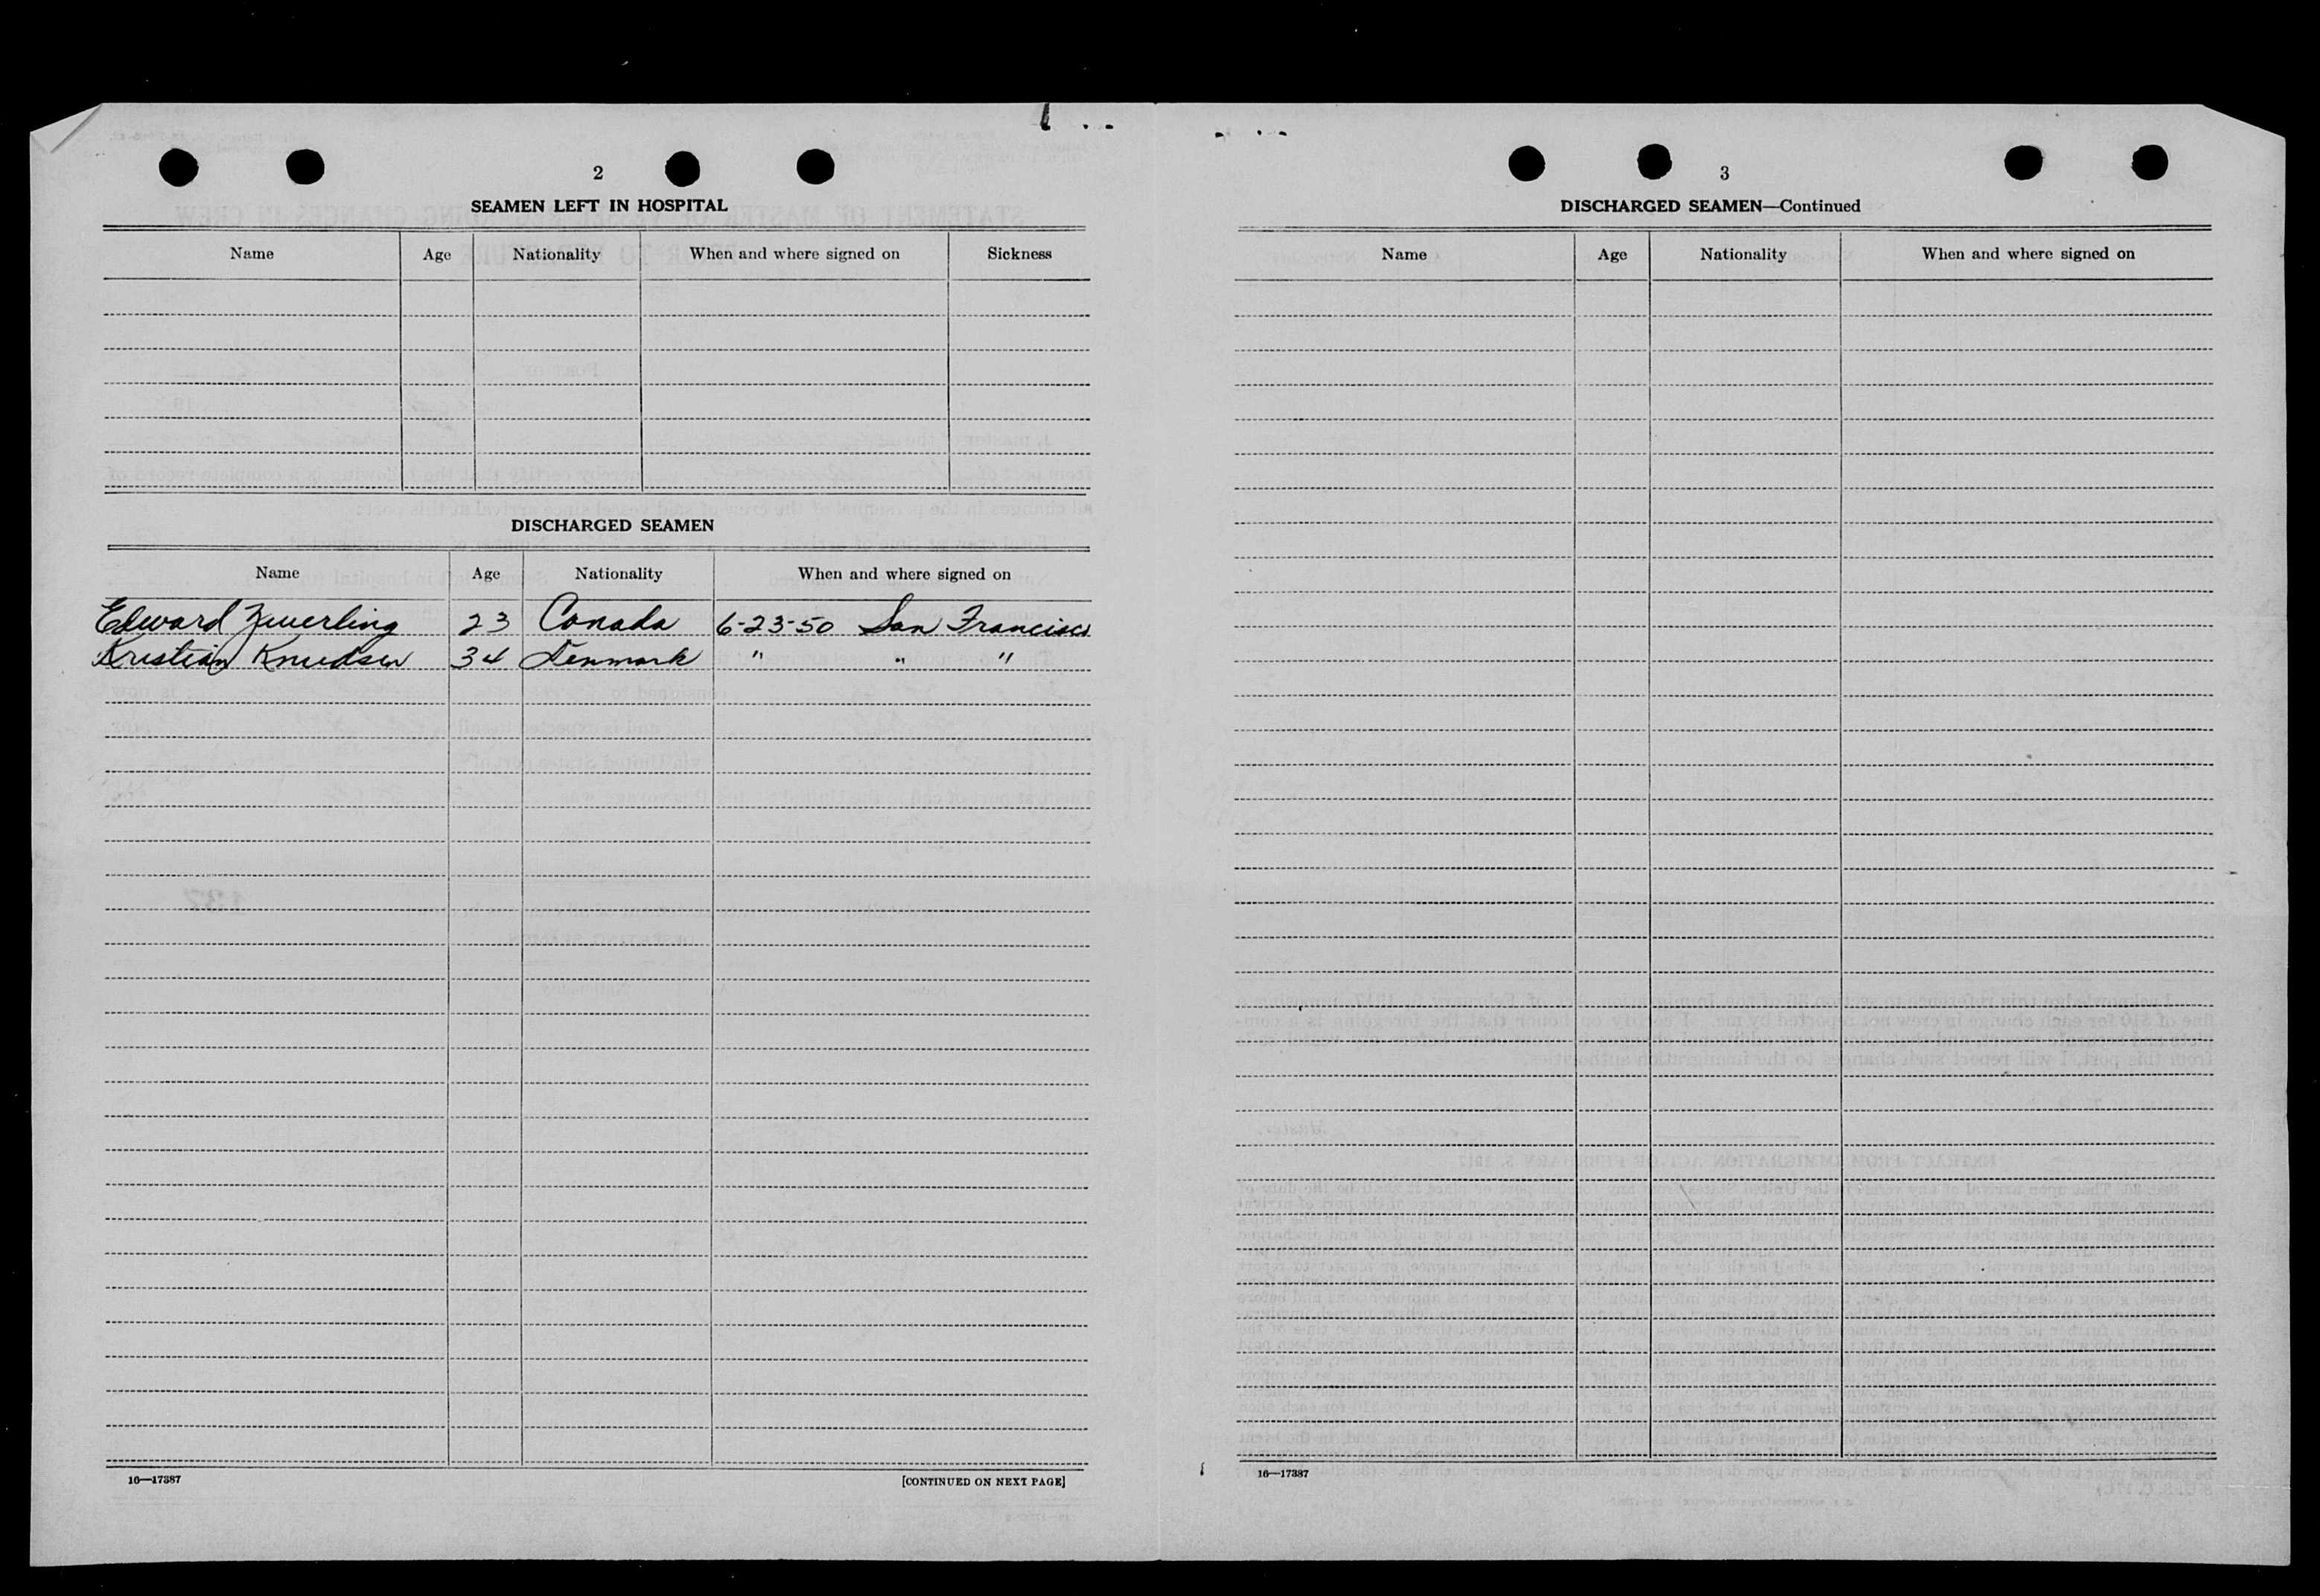 2
SEAMEN LEFT IN HOSPITAL
Name Age Nationality When and where signed on Sickness
DISCHARGED SEAMEN
Name Age Nationality When and where signed on
Edward Zuerling 23 Canada 6-23-50 San Francisco
Kristian Knudsen 34 Denmark " " "
16—17387 [CONTINUED ON NEXT PAGE]
3
DISCHARGED SEAMEN—Continued
Name Age Nationality When and where signed on
16—17387